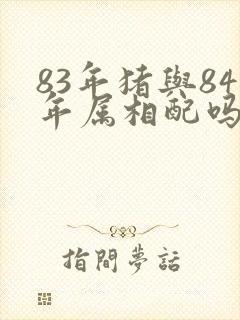 83年猪與84
年属相配吗
指間夢話